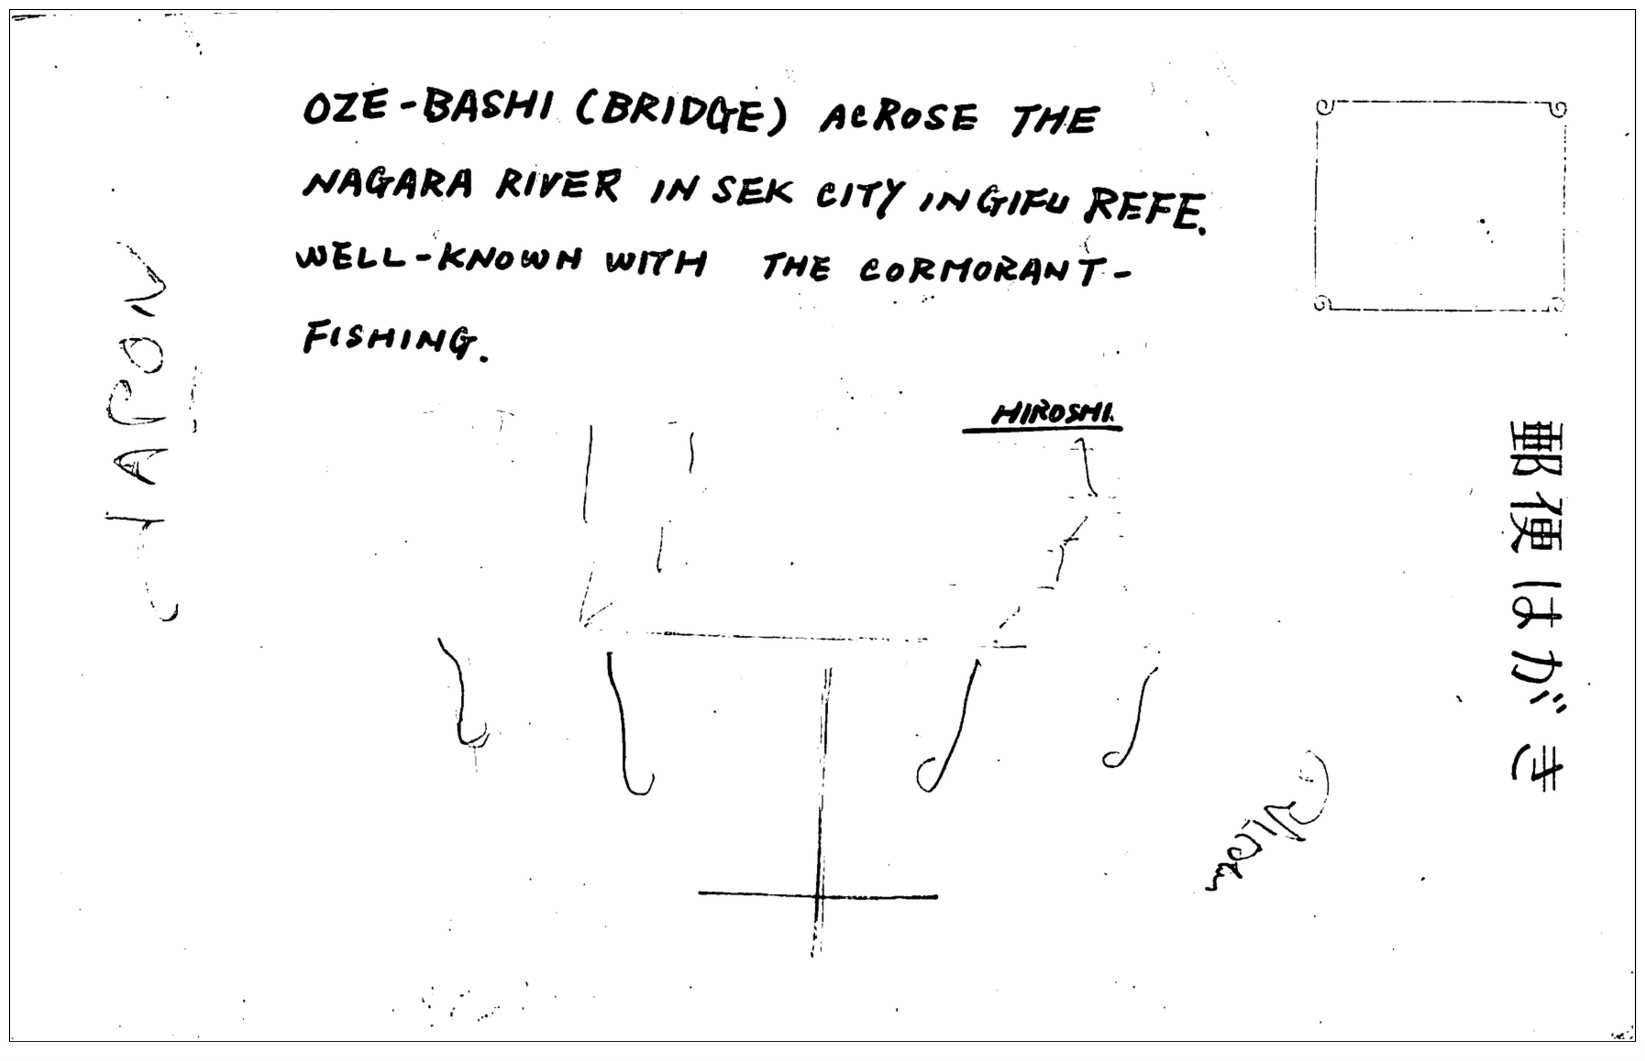 OZE-BASHI (BRIDGE) ACROSE THE
NAGARA RIVER IN SEK CITY IN GIFU REFE.
WELL-KNOWN WITH THE CORMORANT-
FISHING.
HIROSHI.
JAPON
郵便はがき